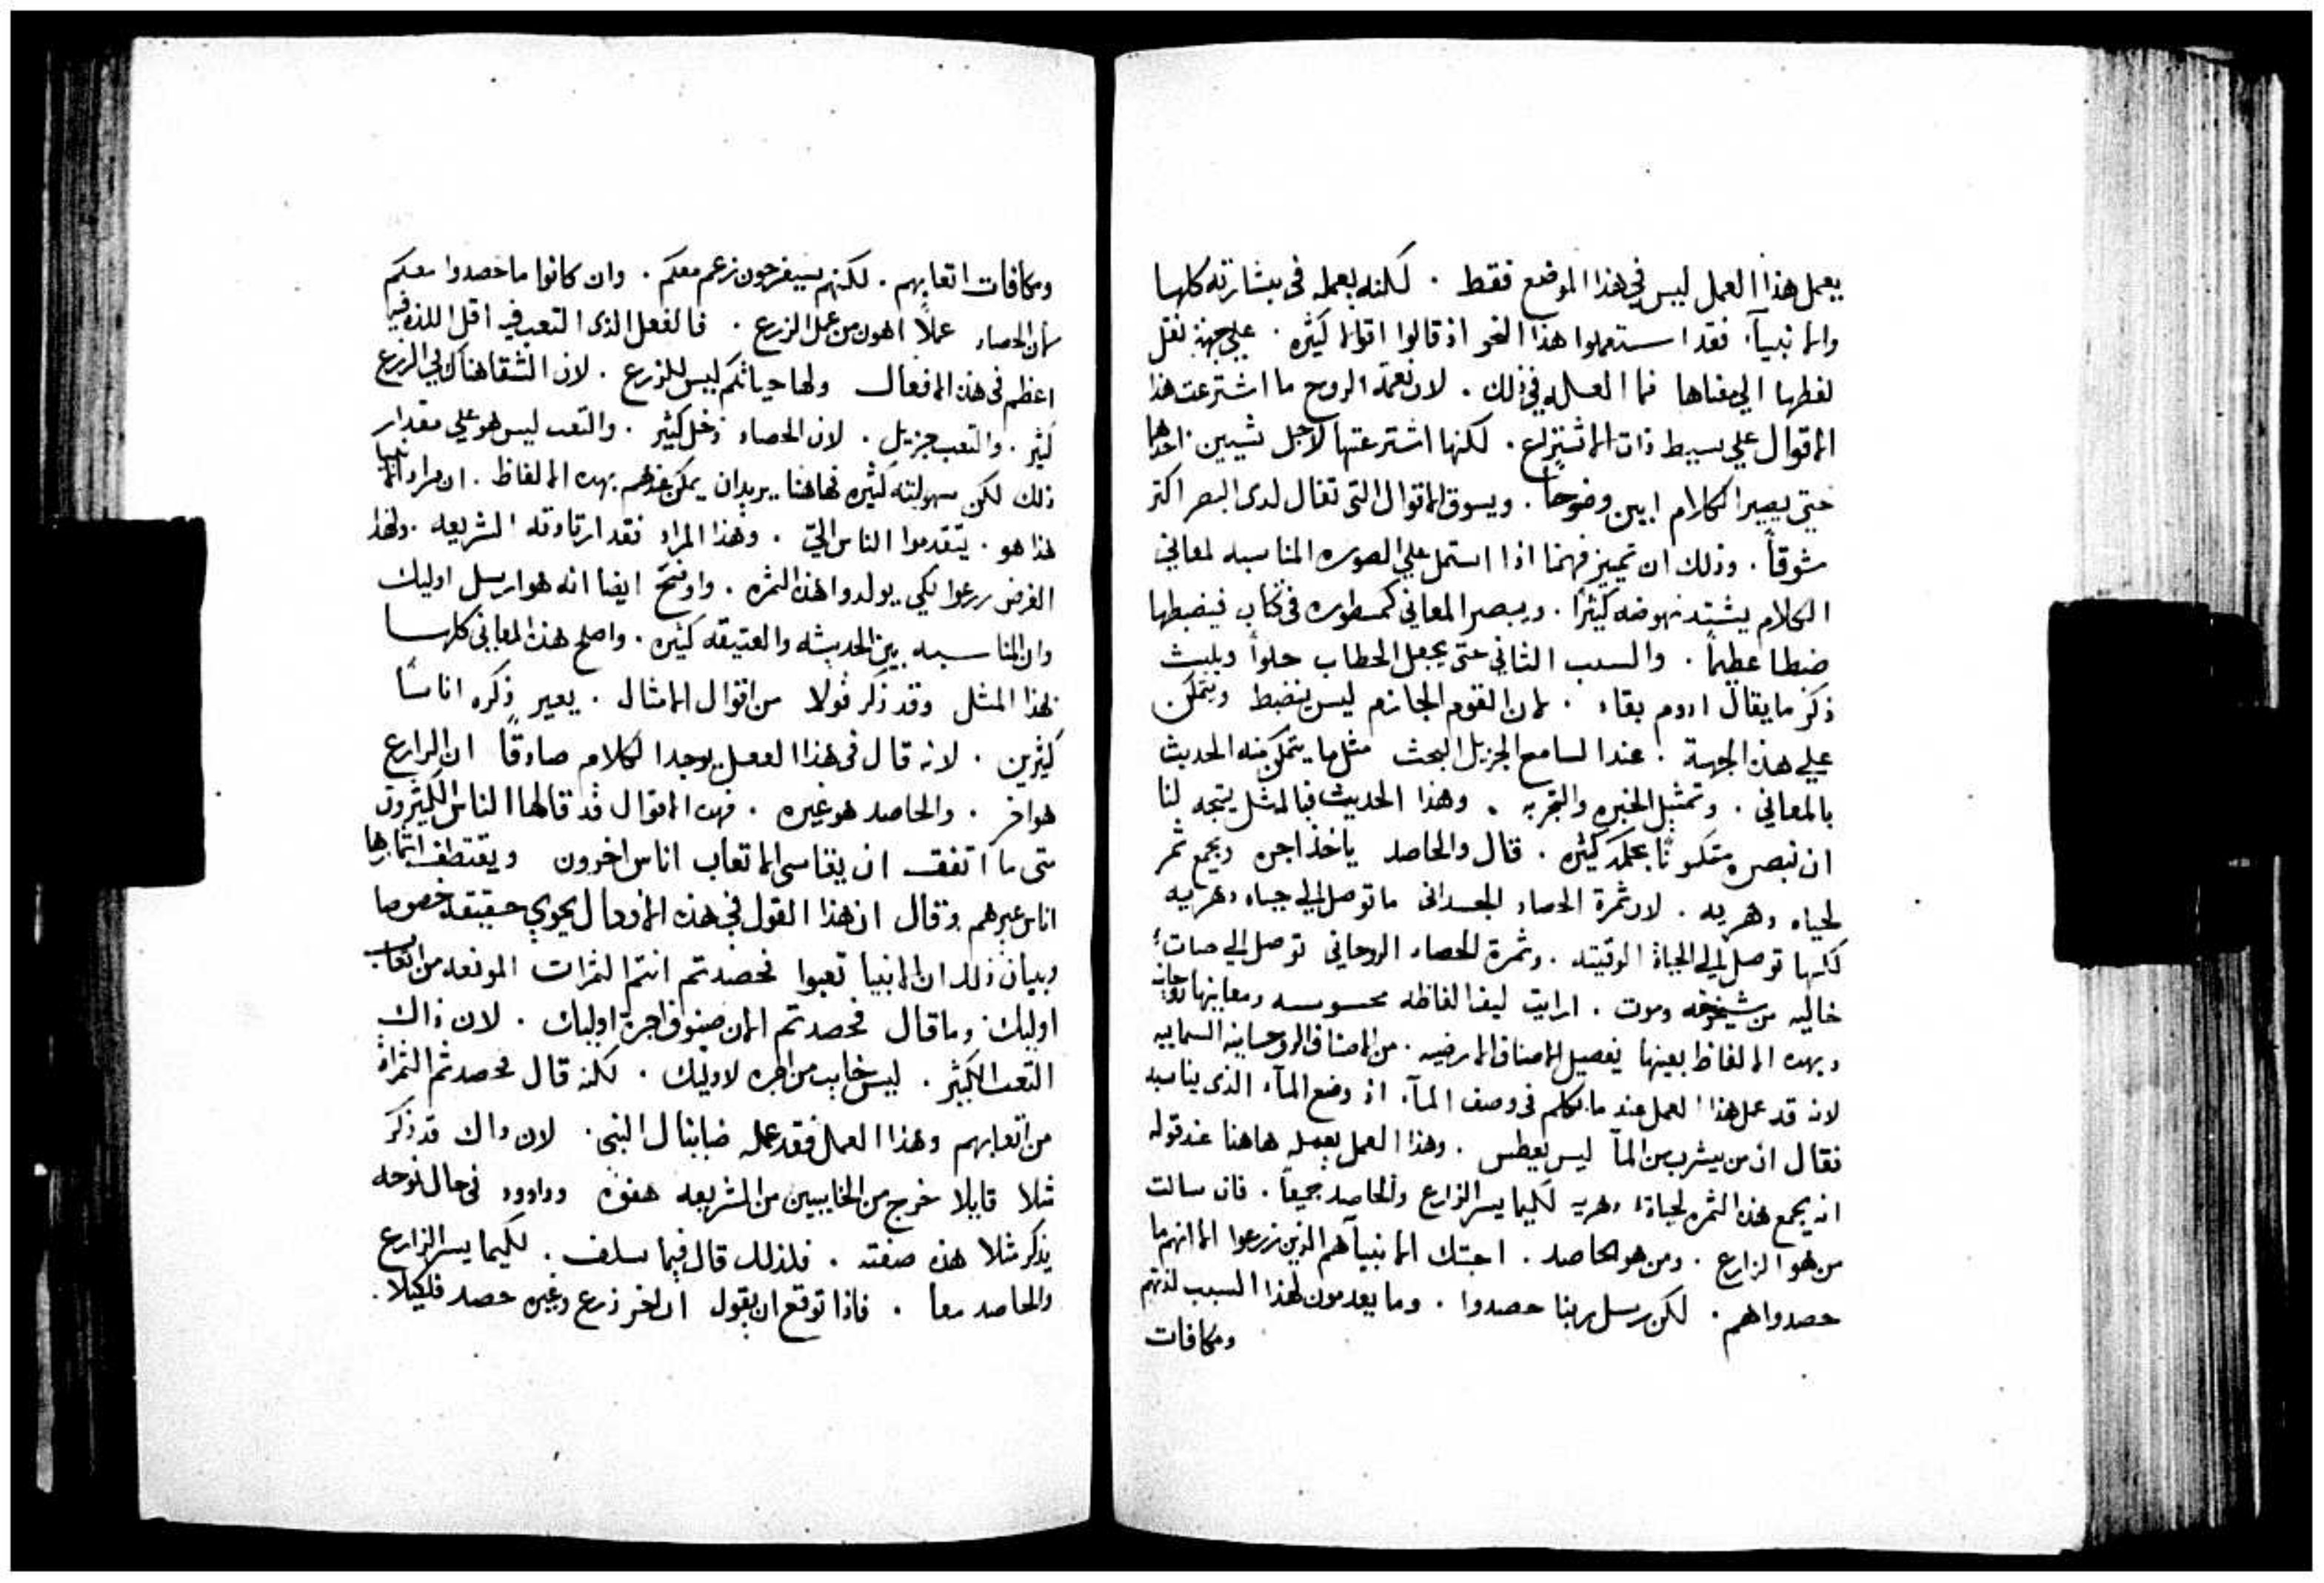 يعمل هذا العمل ليس في هذا الموضع فقط . لكنه يعمله في بشارته كلها
والانبيآء فقد استعملوا هذا النحو اذ قالوا اقوالا كثيره . علي جهة نقل
لفظها الي معناها فما العله في ذلك . لان نعمة الروح ما اشترعت هذا
الاقوال علي بسيط ذات الاشتراع . لكنها اشترعتها لاجل شيين احدها
حتي يصير الكلام ابين وضوحاً . ويسوق الاقوال التي تقال لدى البصر اكثر
شوقاً . وذلك ان تمييز فهمنا اذا استمل علي الصوره المناسبه لمعاني
الكلام يشتد نهوضه كثيراً . ويبصر المعاني كمسطوره في كتاب فيضبطها
ضبطا عظيماً . والسبب الثاني حتى يجعل الخطاب حلواً ويلبث
ذكر ما يقال ادوم بقاء . لان القوم الجازم ليس ينضبط ويتمكن
علي هذه الجهة . عند السامع الجزيل البحث مثل ما يتمكن منه الحديث
بالمعاني . وتمثيل الخبره والتجربه . وهذا الحديث فبالمثل يتجه لنا
ان نبصره متكوناً بحكمه كثيره . قال والحاصد ياخذ اجره ويجمع ثمر
لحياه دهريه . لان ثمرة الحصاد الجسداني ما توصل الي حياه دهريه
لكنها توصل الي الحياة الوقتيه . وثمرة الحصاد الروحاني توصل الي حيات
خاليه من شيخوخه وموت . ارايت كيف الفاظه محسوسه ومعانيها روحانيه
وبهده الالفاظ بعينها يفصل الاصناف الارضيه . من الاصناف الروحسانيه السماييه
لانه قد عمل هذا العمل عند ما تكلم في وصف المآء اذ وضع المآء الذي يناسبه
فقال ان من يشرب من المآ ليس يعطس . وهذا العمل يعمله هاهنا عند قوله
انه يجمع هذه الثمره لحياة دهريه لكيما يسر الزارع والحاصد جميعاً . فان سالت
من هو الزارع . ومن هو الحاصد . اجبتك الانبيآء هم الذين زرعوا الا انهم ما
حصدوا هم . لكن رسل ربنا حصدوا . وما يعدمون لهذا السبب لذتهم
ومكافات
ومكافات اتعابهم . لكنهم سيفرحون زعم معكم . وان كانوا ما حصدوا معكم
لان الحصاد عملاً اهون من عمل الزرع . فالفعل الذي التعب فيه اقل اللذه فيها
اعظم في هذه الافعال ولها حياتكم ليس للزرع . لان الشقا هناك في الزرع
كثير . والتعب جزيل . لان الحصاد دخل كثير . والتعب ليس هو علي مقدار
ذلك لكن سهولته كثيره فهاهنا يريدان يمكن عندهم بهده الالفاظ . ان مراد الانبيا
هذا هو . يتقدموا الناس اليّ . وهذا المراد فقد ارتادته الشريعه . ولهذا
الغرض زرعوا لكي يولدوا هذه الثمره . واوضح ايضا انه هو ارسل اوليك
وان المناسبه بين الحديثه والعتيقه كثيره . واصلح هذه المعاني كلها
بهذا المثل وقد ذكر قولا من اقوال الامثال . يعير ذكره اناساً
كثيرين . لانه قال في هذا الفعل يوجد الكلام صادقاً ان الزارع
هو اخر . والحاصد هو غيره . فهده الاقوال قد قالها الناس الكثيرون
متى ما اتفق ان يقاسى الاتعاب اناس اخرون ويقتطف اثمارها
اناس غيرهم وقال ان هذا القول في هذه الافعال يحوي حقيقة خصوصا
وبيان ذلك ان الانبيا تعبوا فحصدتم انتم الثمرات المونعه من اتعاب
اوليك وما قال فحصدتم الان صنوف اجرة اوليك . لان ذاك
التعب الكثير . ليس خايب من اجره لاوليك . لكنه قال فحصدتم الثمراة
من اتعابهم وهذا العمل فقد عمله ضابنال النبي . لان داك قد ذكر
مثلا قايلا خرج من الخايبين من الشريعه هفوه وداوود في حال نوحه
يذكر مثلا هذه صفته . فلذلك قال فيما سلف . لكيما يسر الزارع
والحاصد معا . فاذا توقع ان يقول ان اخر زرع وغيره حصد فلكيلا .